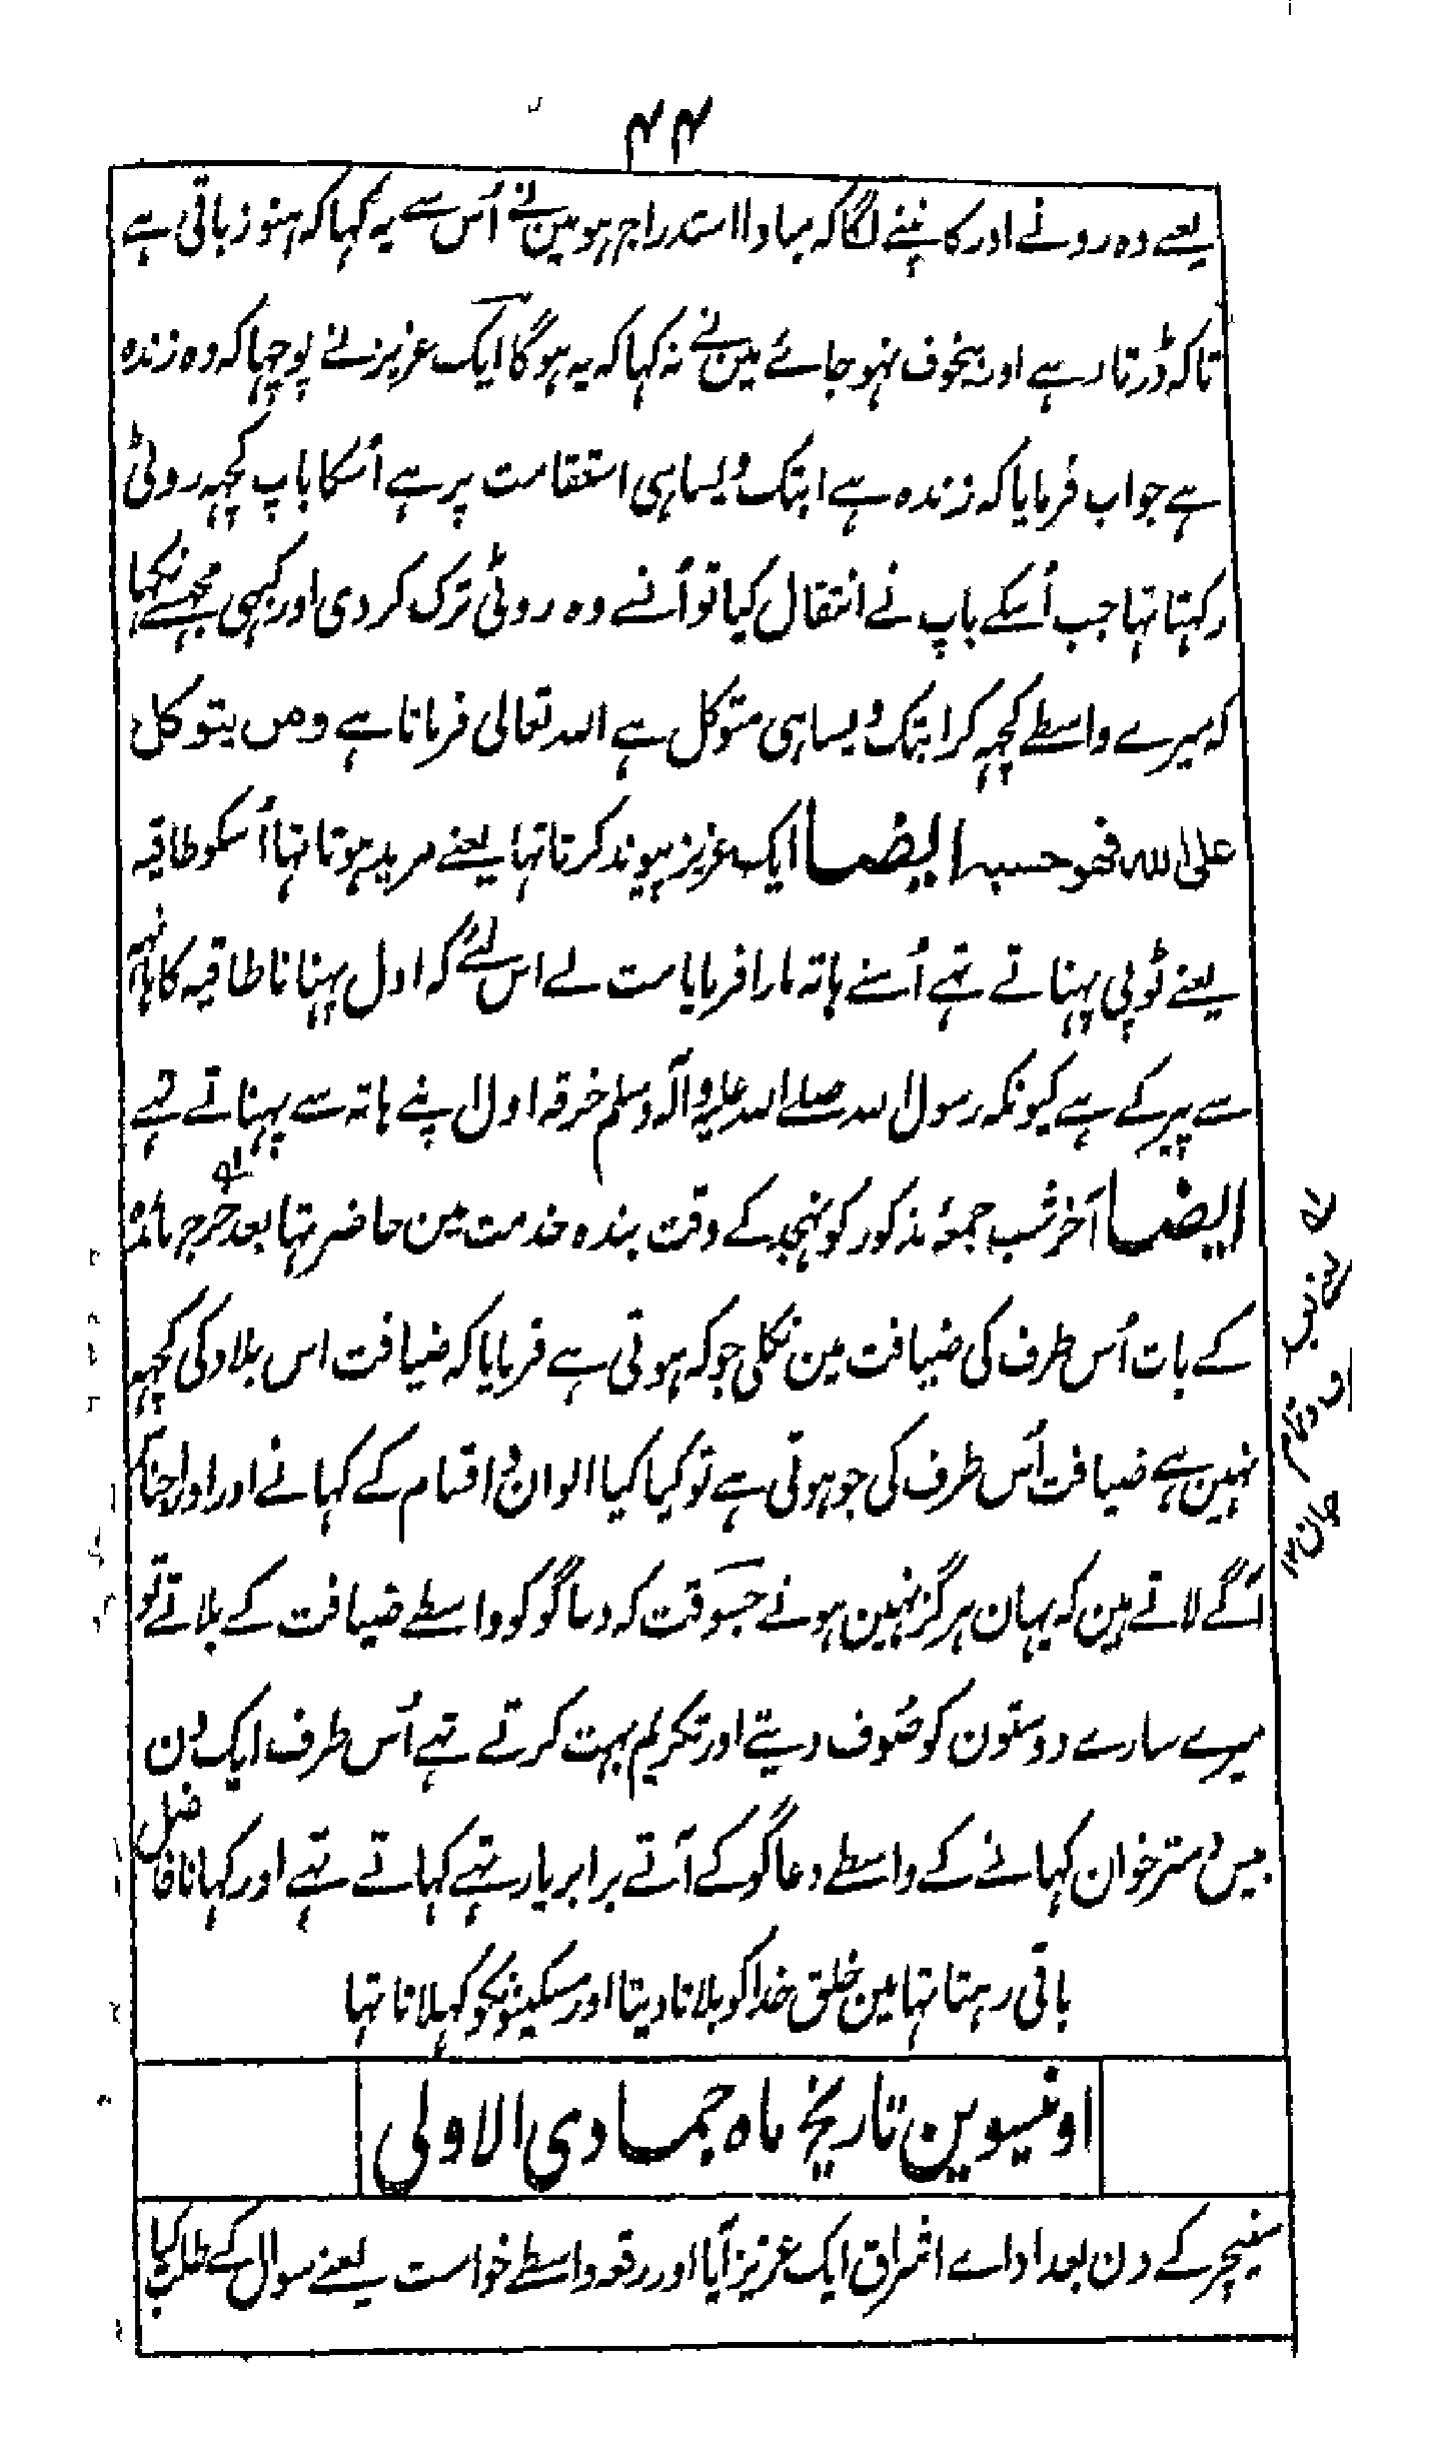 ۴۴
یعنے وہ رونے اور کانپنے لگا کہ مبادا استدراج ہو مین نے اُس سے یہ کہا کہ ہنوز باقی ہے
تاکہ ڈرتا رہے اور بیخوف نہو جائے مین نے نہ کہا کہ یہ ہوگا ایک عزیز نے پوچہا کہ وہ زندہ
ہے جواب فرمایا کہ زندہ ہے ابتک ویسا ہی استقامت پر ہے اُسکا باپ کچہہ روٹی
رکہتا تہا جب اُسکے باپ نے انتقال کیا تو اُسنے وہ روٹی ترک کر دی اور کبہی مجہسے نکہا
کہ میرے واسطے کچہہ کر ابتک ویسا ہی متوکل ہے اللہ تعالی فرماتا ہے ومن یتوکل
علی اللہ فھو حسبہ ایضا ایک عزیز پیوند کرتا تہا یعنے مرید ہوتا تہا اُسکو طاقیہ
یعنے ٹوپی پہناتے تہے اُسنے ہاتہ مارا فرمایا مت لے اس لئے کہ اول پہنانا طاقیہ کا ہاتہہ
سے پیر کے ہے کیونکہ رسول اللہ صلے اللہ علیہ وآلہ وسلم خرقہ اول اپنے ہاتہ سے پہناتے تہے
ایضا آخر شب جمعۂ مذکور کو تہجد کے وقت بندہ خدمت مین حاضر تہا بعد
کے بات اُس طرف کی ضیافت مین نکلی جو کہ ہوتی ہے فرمایا کہ ضیافت اس بلاد کی کچہہ
نہین ہے ضیافت اُس طرف کی جو ہوتی ہے تو کیا کیا الوان و اقسام کے کہانے اور
آگے لاتے ہین کہ یہان ہرگز نہین ہوتے جسوقت کہ دعاگو کو واسطے ضیافت کے بلاتے تو
میرے سارے دوستون کو صُوف دیتے اور تکریم بہت کرتے تہے اُس طرف ایک دن
بیس دسترخوان کہانے کے واسطے دعاگو کے آتے برابر یار تہے کہاتے تہے اور کہانا فاضل
باقی رہتا تہا مین خلق خدا کو بلاتا دیتا اور مسکینونکو کہلاتا تہا
اونیسوین تاریخ ماہ جمادی الاولی
سنیچر کے دن بعد اداے اشراق ایک عزیز آیا اور رقعہ واسطے خواست یعنے سوال کے طلب کیا